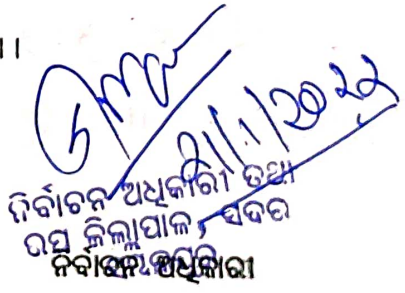 ।।
21/1/2022
ନିର୍ବାଚନ ଅଧିକାରୀ ତଥା
ଉପ ଜିଲ୍ଲାପାଳ, ସଦର
ନିର୍ବାଚନ ଅଧିକାରୀ